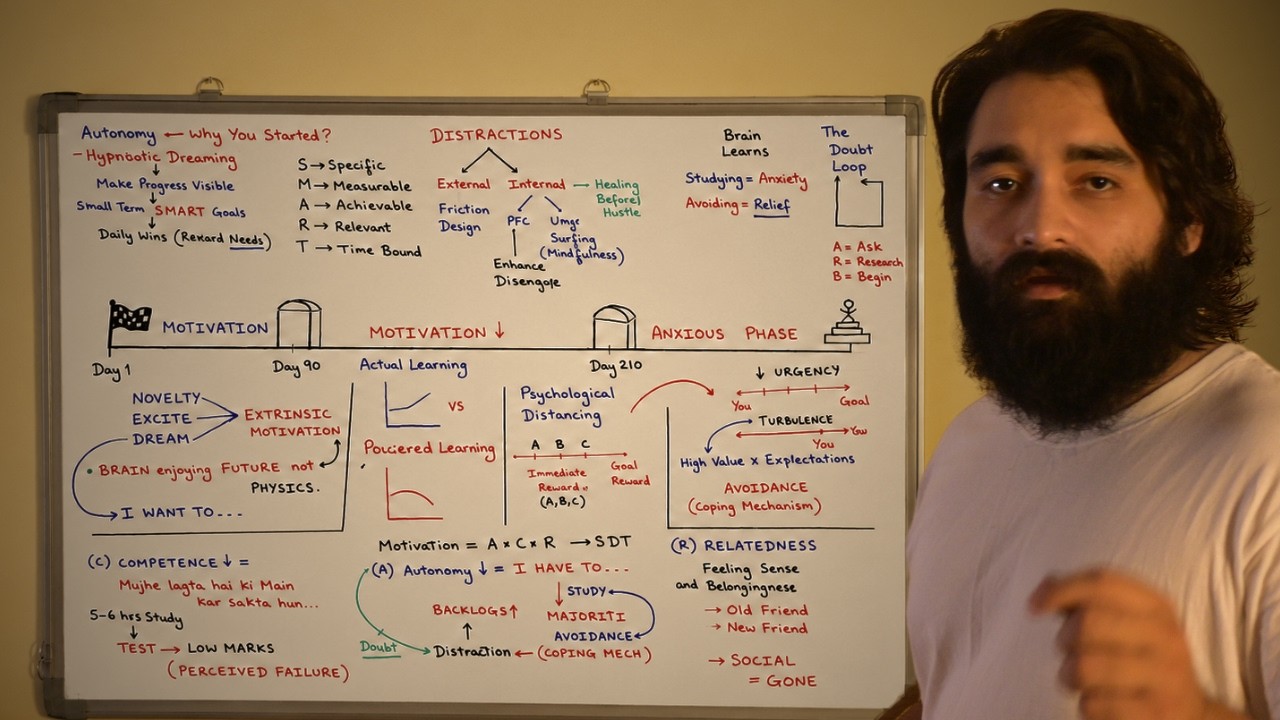 Autonomy ← Why You Started?
- Hypnootic Dreaming
Make Progress Visible
Small Term SMART Goals
Daily Wins (Reward Needs)
S → Specific
M → Measurable
A → Achievable
R → Relevant
T → Time Bound
DISTRACTIONS
External
Internal → Healing
Before
Hustle
Friction
Design
PFC
Surfing
(Mindfulness)
Enhance
Brain
Learns
Studying = Anxiety
Avoiding = Relief
The
Doubt
Loop
A = Ask
R = Research
B = Begin
MOTIVATION
MOTIVATION ↓
ANXIOUS PHASE
Day 1
Day 90
Day 210
NOVELTY
EXCITE
DREAM
EXTRINSIC
MOTIVATION
• BRAIN enjoying FUTURE not
PHYSICS.
I WANT TO...
Actual Learning
VS
Learning
Psychological
Distancing
A B C
Immediate
Reward
(A,B,C)
Goal
Reward
↓ URGENCY
You
Goal
TURBULENCE
You
High Value x Explectations
AVOIDANCE
(Coping Mechanism)
Motivation = A x C x R → SDT
(C) COMPETENCE ↓ =
Mujhe lagta hai ki Main
kar sakta hun...
5-6 hrs Study
TEST → LOW MARKS
(PERCEIVED FAILURE)
(A) Autonomy ↓ = I HAVE TO...
STUDY
BACKLOGS ↑
MAJORITI
AVOIDANCE
Doubt
Distraction ← (COPING MECH)
(R) RELATEDNESS
Feeling Sense
and Belongingnese
→ Old Friend
→ New Friend
→ SOCIAL
= GONE